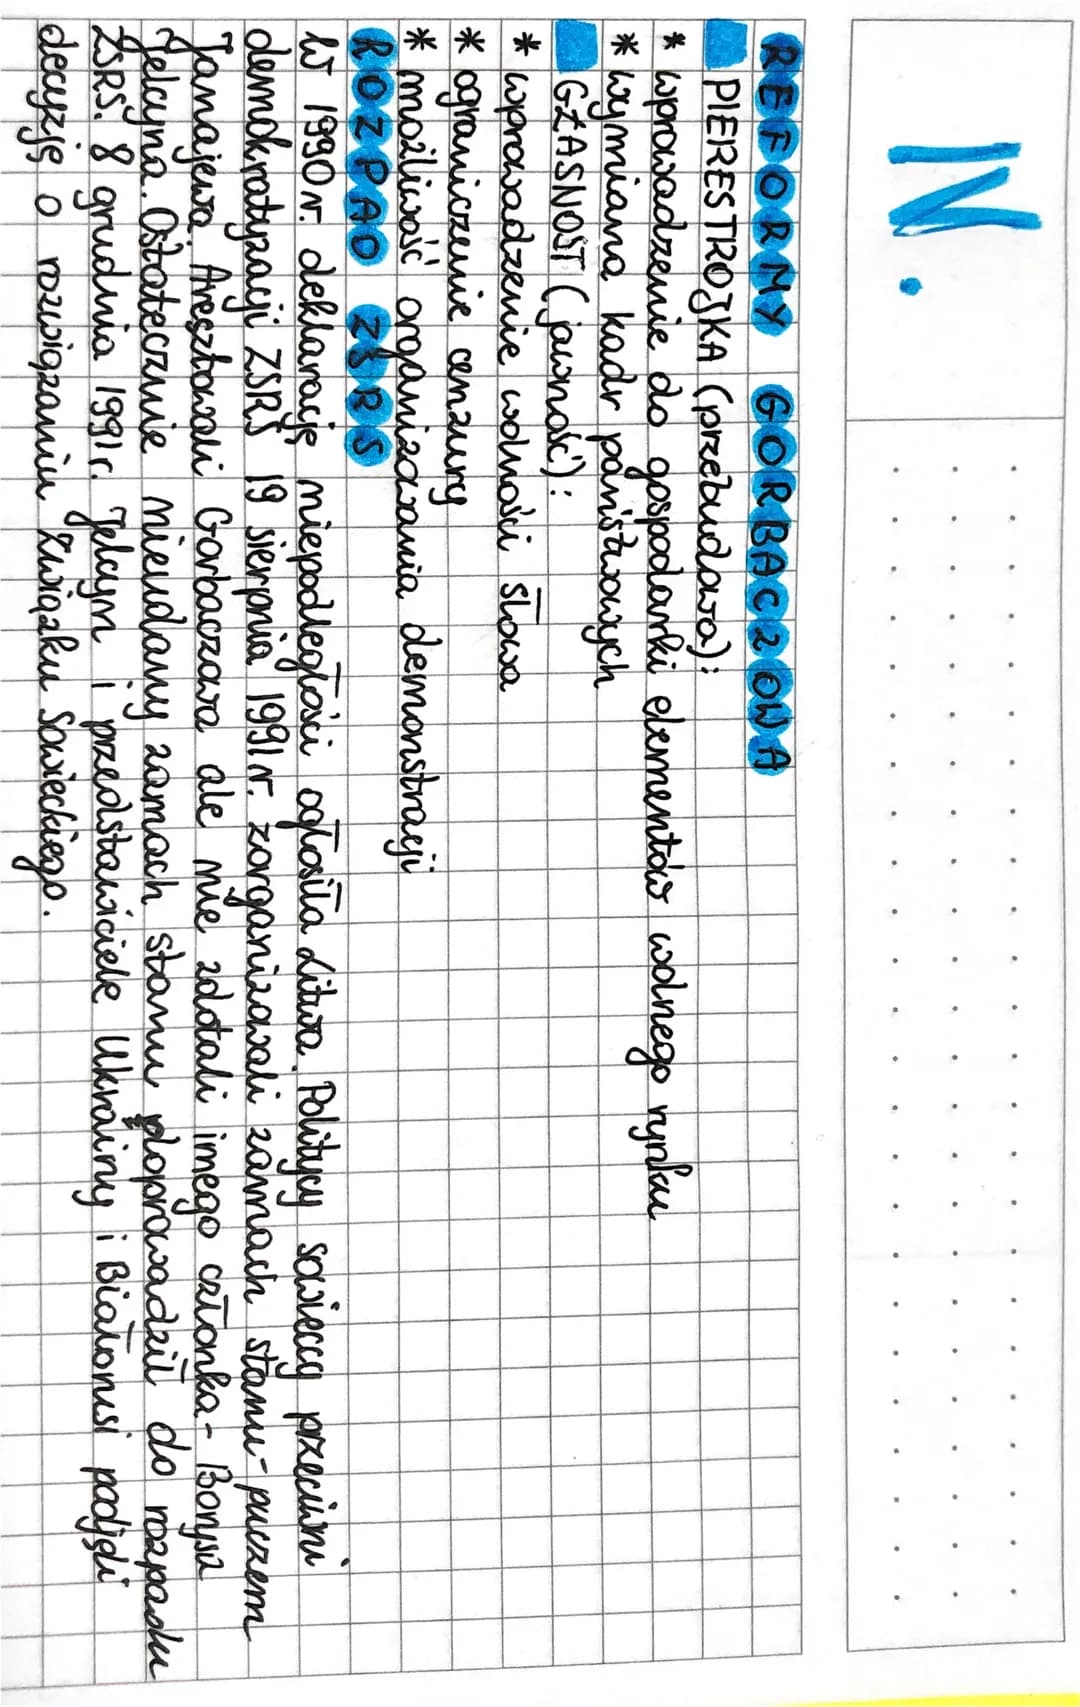 IV.
REFORMY GORBACZOWA
PIERESTROJKA (przebudowa):
* wprowadzenie do gospodarki elementów wolnego rynku
* wymiana kadr państwowych
GŁASNOST (jawność):
* wprowadzenie wolności słowa
* ograniczenie cenzury
* możliwość organizowania demonstracji
ROZPAD ZSRS
W 1990r. deklarację niepodległości ogłosiła Litwa. Politycy sowieccy przeciwni
demokratyzacji ZSRS 19 sierpnia 1991r. zorganizowali zamach stanu - puczem
Janajewa. Aresztowali Gorbaczowa ale nie zdołali innego członka - Borysa
Jelcyna. Ostatecznie nieudany zamach stanu doprowadził do rozpadu
ZSRS. 8 grudnia 1991r. Jelcyn i przedstawiciele Ukrainy i Białorusi podjęli
decyzję o rozwiązaniu Związku Sowieckiego.